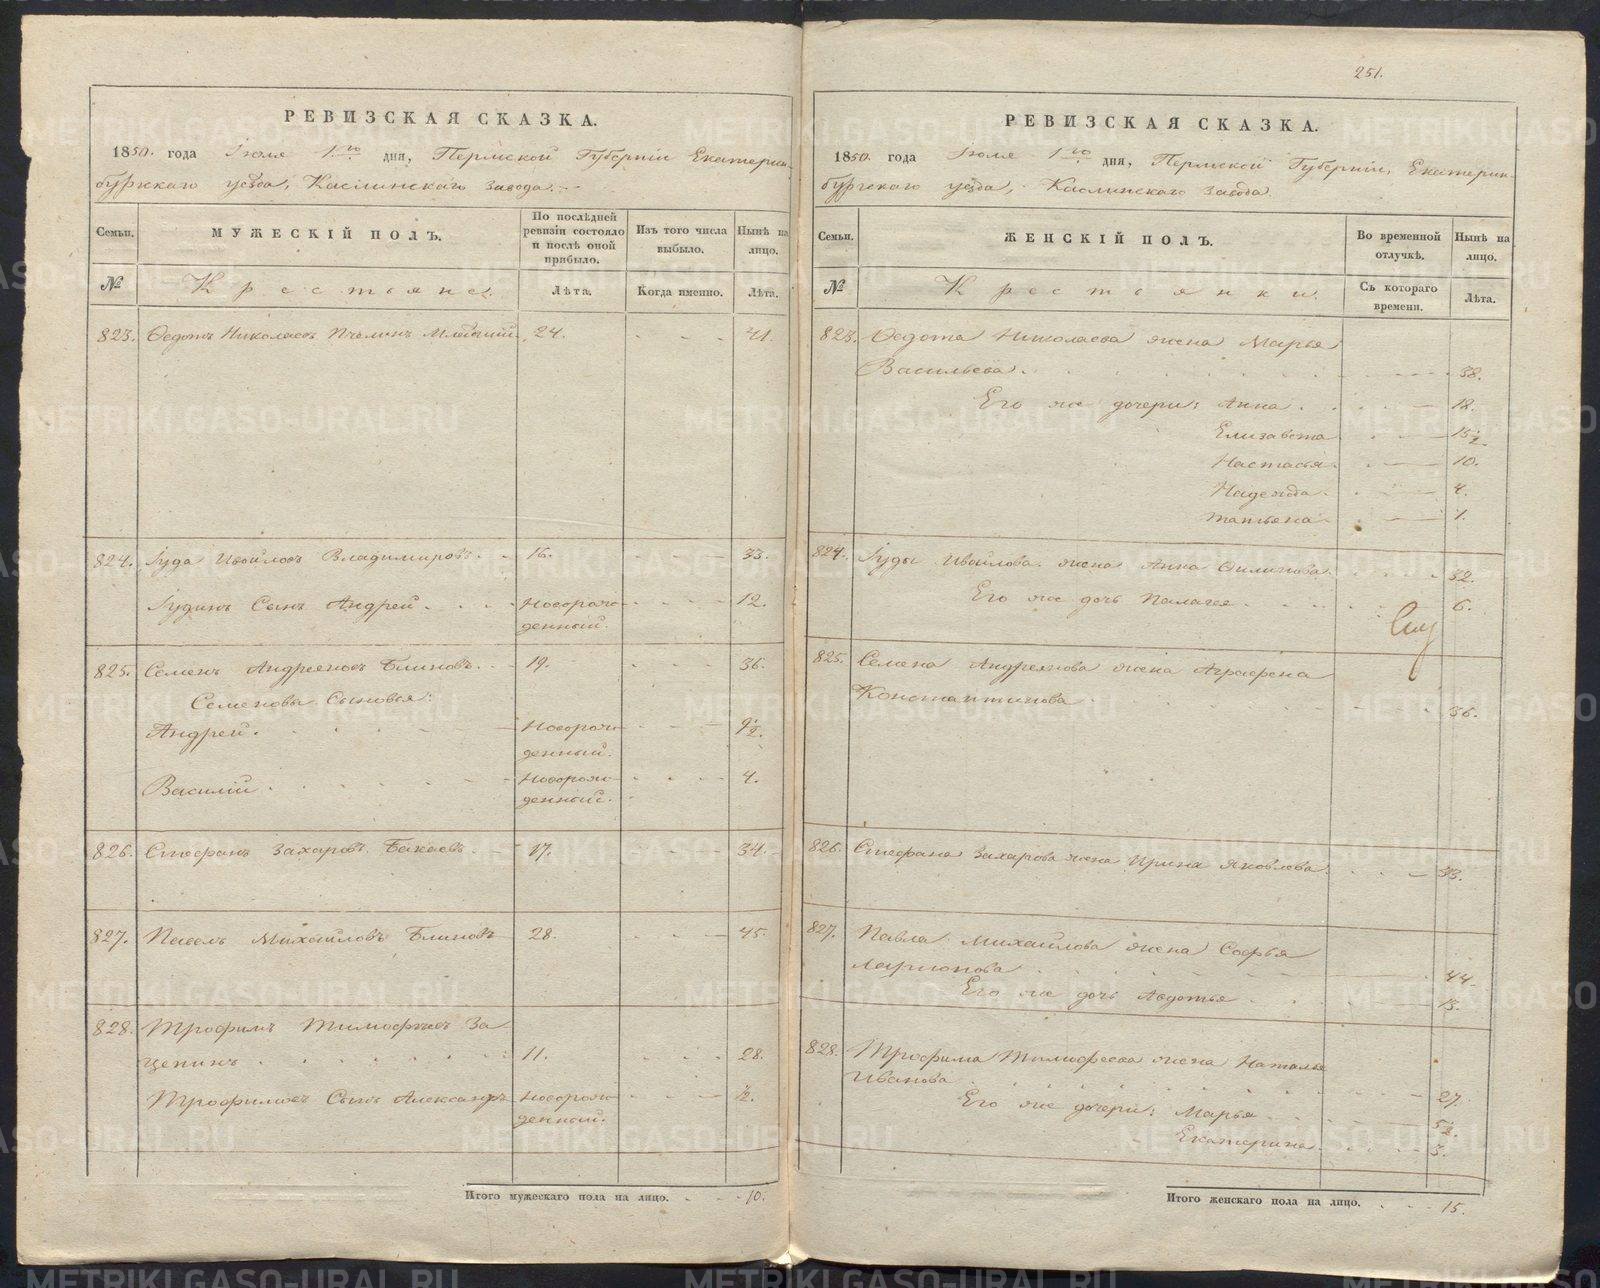 251.
РЕВИЗСКАЯ СКАЗКА.
1850. года Іюля 1го дня, Пермской Губерніи Екатерин-
бургскаго уѣзда, Каслинскаго завода.
Семьи.
МУЖЕСКІЙ ПОЛЪ.
По послѣдней
ревизіи состояло
и послѣ оной
прибыло.
Изъ того числа
выбыло.
Нынѣ на
лицо.
№
Крестьяне.
Лѣта.
Когда именно.
Лѣта.
823. Ѳедотъ Николаевъ Пчелинъ Младшій 24. 41.
824. Іуда Ивойловъ Владимировъ. 16. 33.
Іудинъ Сынъ Андрей. Новорож- 12.
денный.
825. Семенъ Андреяновъ Блиновъ. 19. 36.
Семеновы Сыновья:
Андрей. Новорож- 9½.
денный.
Василій. Новорож- 4.
денный.
826. Стефанъ Захаровъ Бакаевъ. 17. 34.
827. Павелъ Михайловъ Блиновъ 28. 45.
828. Трофимъ Тимофѣевъ За-
цепинъ 11. 28.
Трофимовъ Сынъ Александръ Новорож- ½.
денный.
Итого мужескаго пола на лицо. 10.
РЕВИЗСКАЯ СКАЗКА.
1850. года Іюля 1го дня, Пермской Губерніи, Екатерин-
бургскаго уѣзда, Каслинскаго Завода.
Семьи.
ЖЕНСКІЙ ПОЛЪ.
Во временной
отлучкѣ.
Нынѣ на
лицо.
№
Крестьянки.
Съ котораго
времени.
Лѣта.
823. Ѳедота Николаева жена Марья
Васильева. 38.
Его же дочери: Анна. 18.
Елизавета 15½.
Настасья. 10.
Надежда. 4.
Татьяна. 1.
824. Іуды Ивойлова жена Анна Филипова. 32.
Его же дочь Палагея. 6.
825. Семена Андреянова жена Аграфена
Константинова 36.
826. Стефана Захарова жена Ирина Яковлева. 33.
827. Павла Михайлова жена Софья
Ларионова 44.
Его же дочь Авдотья 13.
828. Трофима Тимофеева жена Наталья
Иванова 27.
Его же дочери: Марья 5½.
Екатерина. 3.
Итого женскаго пола на лицо. 15.
METRIKI.GASO-URAL.RU